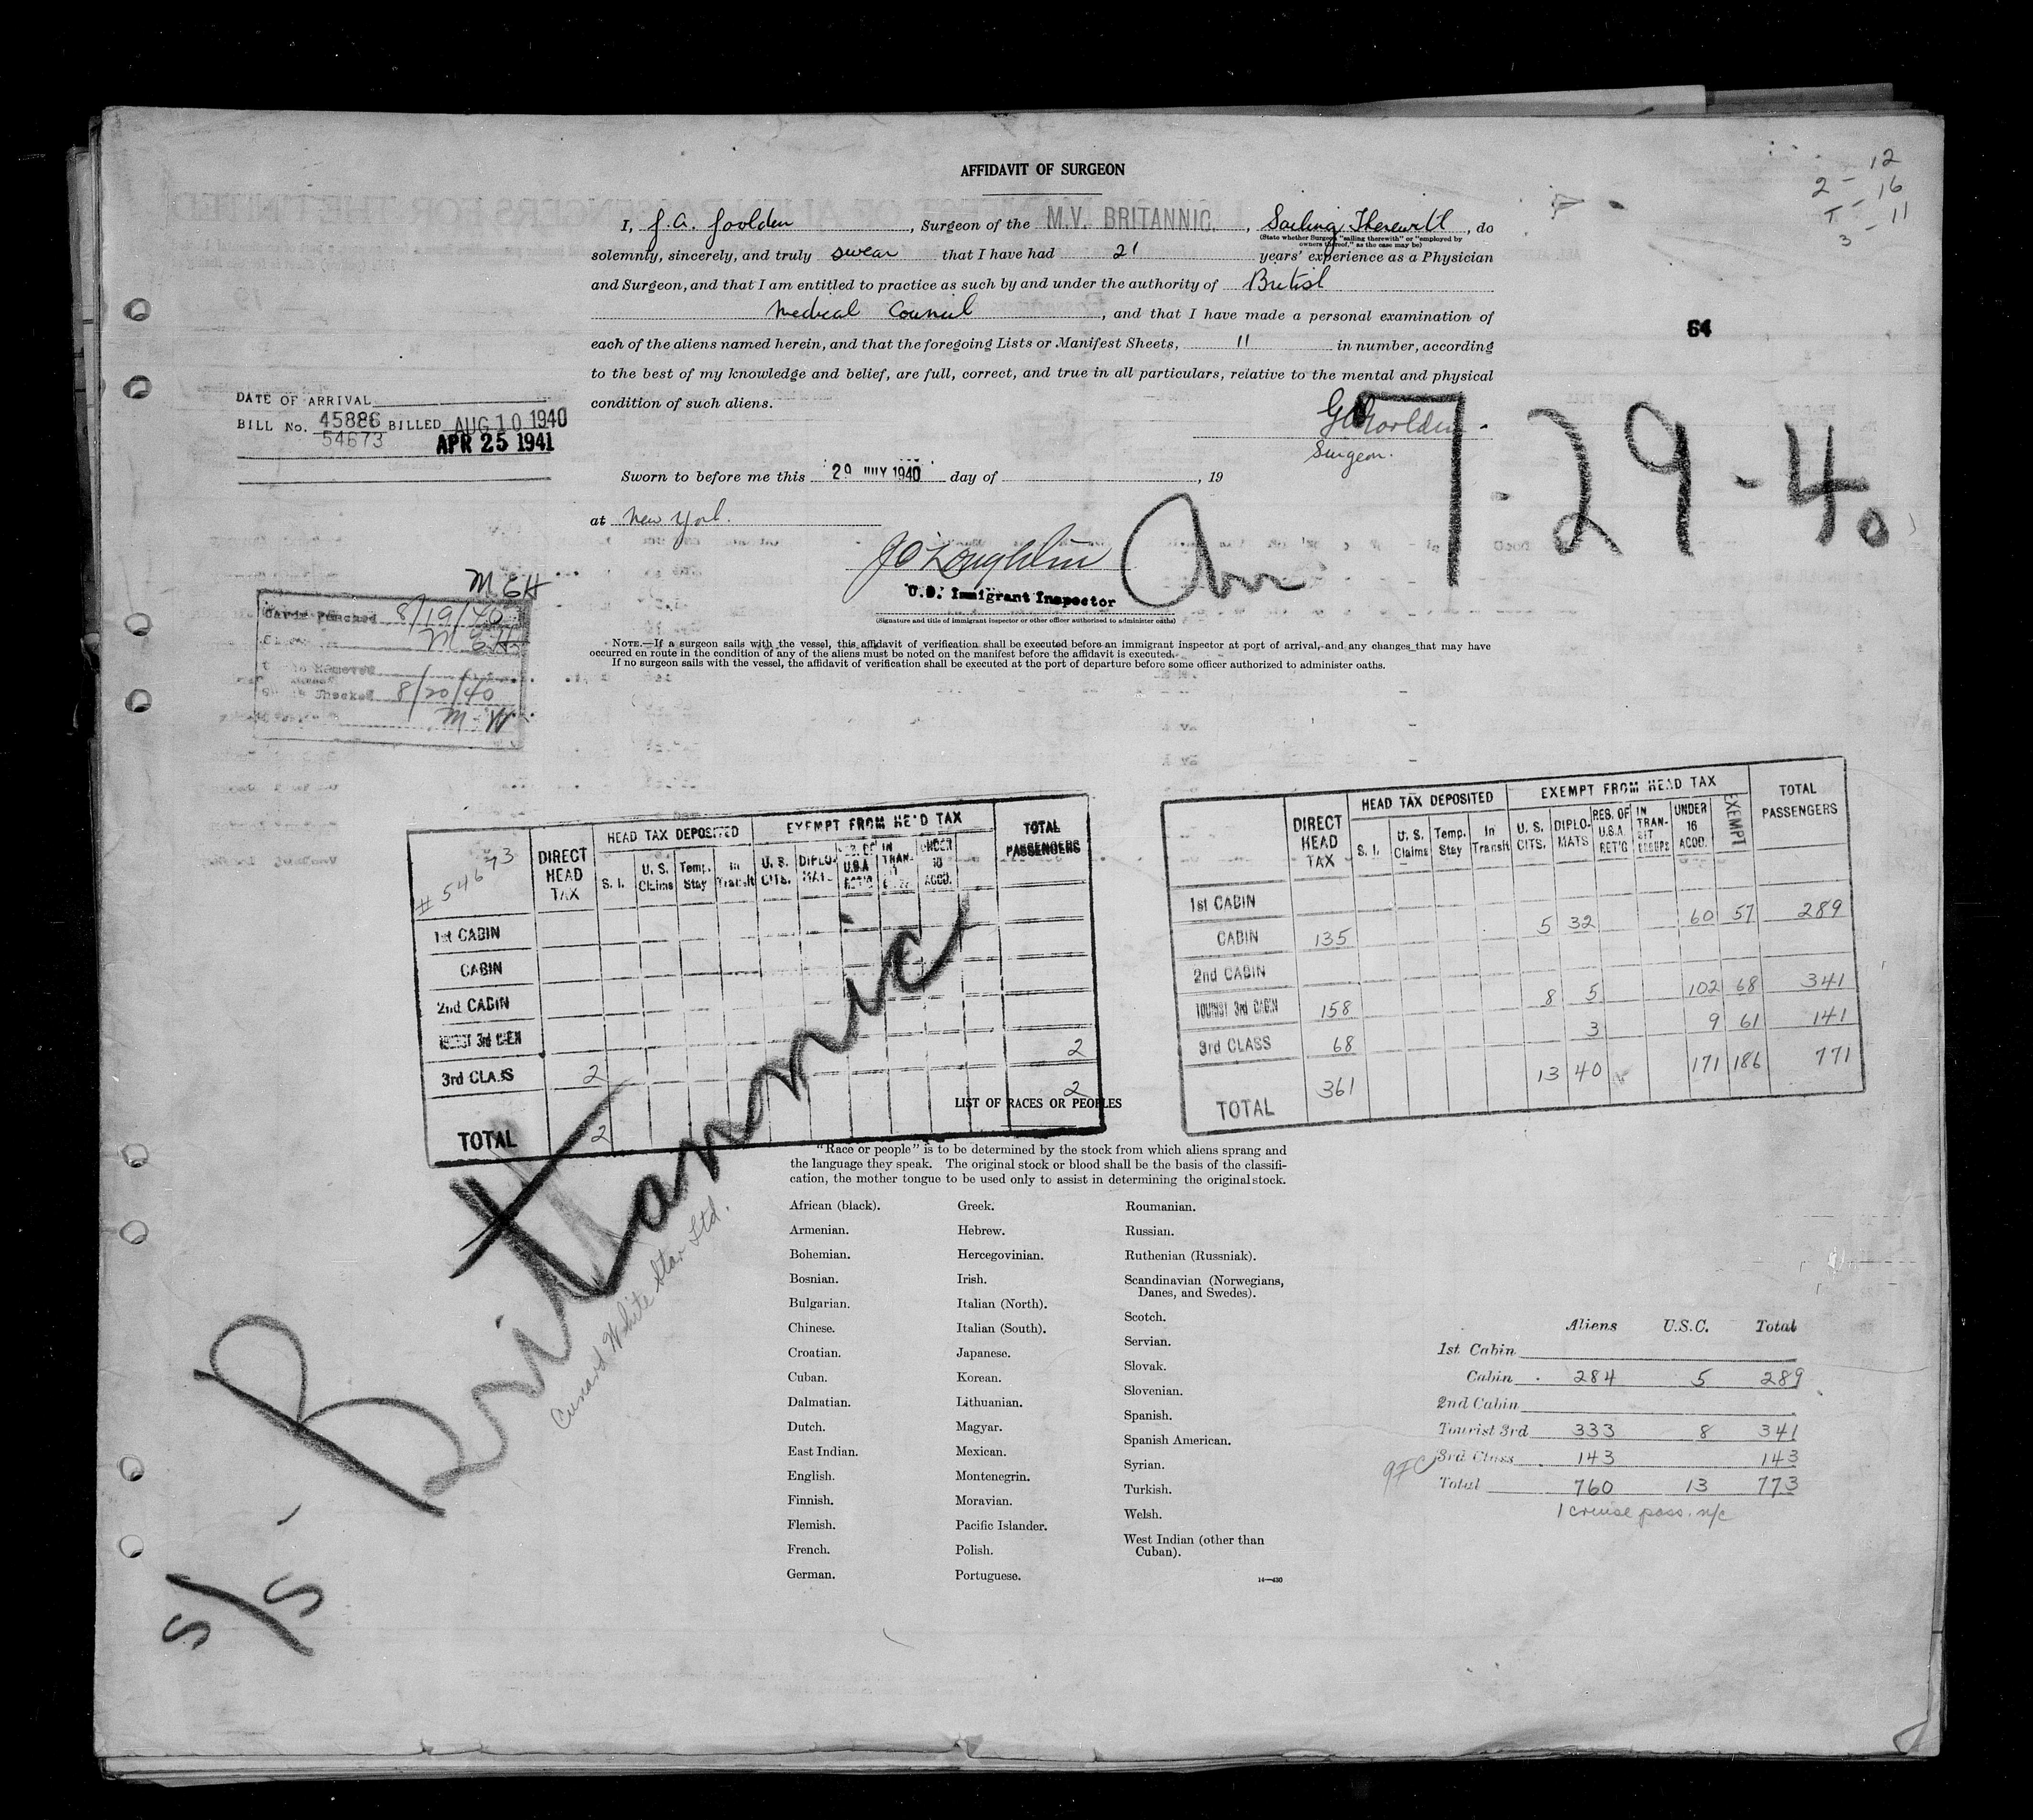 AFFIDAVIT OF SURGEON
12
2 - 16
T - 11
3 -
I, G. A. Goolden, Surgeon of the M.V. BRITANNIC, Sailing Therewith, do
(State whether Surgeon "sailing therewith" or "employed by owners thereof," as the case may be)
solemnly, sincerely, and truly swear that I have had 21 years' experience as a Physician
and Surgeon, and that I am entitled to practice as such by and under the authority of British
Medical Council, and that I have made a personal examination of
64
each of the aliens named herein, and that the foregoing Lists or Manifest Sheets, 11 in number, according
to the best of my knowledge and belief, are full, correct, and true in all particulars, relative to the mental and physical
condition of such aliens.
DATE OF ARRIVAL
BILL No. 45886 BILLED AUG 10 1940
54673 APR 25 1941
Goolden.
Surgeon.
7-29-40
Sworn to before me this 29 JULY 1940 day of , 19
at New York.
J O'Loughlin
U.S. Immigrant Inspector
(Signature and title of immigrant inspector or other officer authorized to administer oaths)
Arr
M E H
Cards Punched 8/19/40
M E H
Checked 8/20/40
M. W.
NOTE.—If a surgeon sails with the vessel, this affidavit of verification shall be executed before an immigrant inspector at port of arrival, and any changes that may have
occurred en route in the condition of any of the aliens must be noted on the manifest before the affidavit is executed.
If no surgeon sails with the vessel, the affidavit of verification shall be executed at the port of departure before some officer authorized to administer oaths.
# 54673
DIRECT HEAD TAX
HEAD TAX DEPOSITED
S. I. U. S. Claims Temp. Stay In Transit
EXEMPT FROM HEAD TAX
U. S. CITS. DIPLO-MATS RES. OF U.S.A. RET'G IN TRAN-SIT UNDER 16 ACCO.
TOTAL PASSENGERS
1st CABIN
CABIN
2nd CABIN
TOURIST 3rd CABIN
3rd CLASS 2 2
TOTAL 2 2
DIRECT HEAD TAX
HEAD TAX DEPOSITED
S. I. U. S. Claims Temp. Stay In Transit
EXEMPT FROM HEAD TAX
U. S. CITS. DIPLO-MATS RES. OF U.S.A. RET'G IN TRAN-SIT GROUPS UNDER 16 ACCO. EXEMPT
TOTAL PASSENGERS
1st CABIN
CABIN 135 5 32 60 57 289
2nd CABIN
TOURIST 3rd CABIN 158 8 5 102 68 341
3rd CLASS 68 3 9 61 141
TOTAL 361 13 40 171 186 771
S/S - Britannic
Cunard White Star Ltd.
LIST OF RACES OR PEOPLES
"Race or people" is to be determined by the stock from which aliens sprang and
the language they speak. The original stock or blood shall be the basis of the classifi-
cation, the mother tongue to be used only to assist in determining the original stock.
African (black).
Armenian.
Bohemian.
Bosnian.
Bulgarian.
Chinese.
Croatian.
Cuban.
Dalmatian.
Dutch.
East Indian.
English.
Finnish.
Flemish.
French.
German.
Greek.
Hebrew.
Hercegovinian.
Irish.
Italian (North).
Italian (South).
Japanese.
Korean.
Lithuanian.
Magyar.
Mexican.
Montenegrin.
Moravian.
Pacific Islander.
Polish.
Portuguese.
Roumanian.
Russian.
Ruthenian (Russniak).
Scandinavian (Norwegians,
Danes, and Swedes).
Scotch.
Servian.
Slovak.
Slovenian.
Spanish.
Spanish American.
Syrian.
Turkish.
Welsh.
West Indian (other than
Cuban).
14—430
Aliens U.S.C. Total
1st. Cabin
Cabin 284 5 289
2nd Cabin
Tourist 3rd 333 8 341
3rd Class 143 143
Total 760 13 773
1 cruise pass. n/c